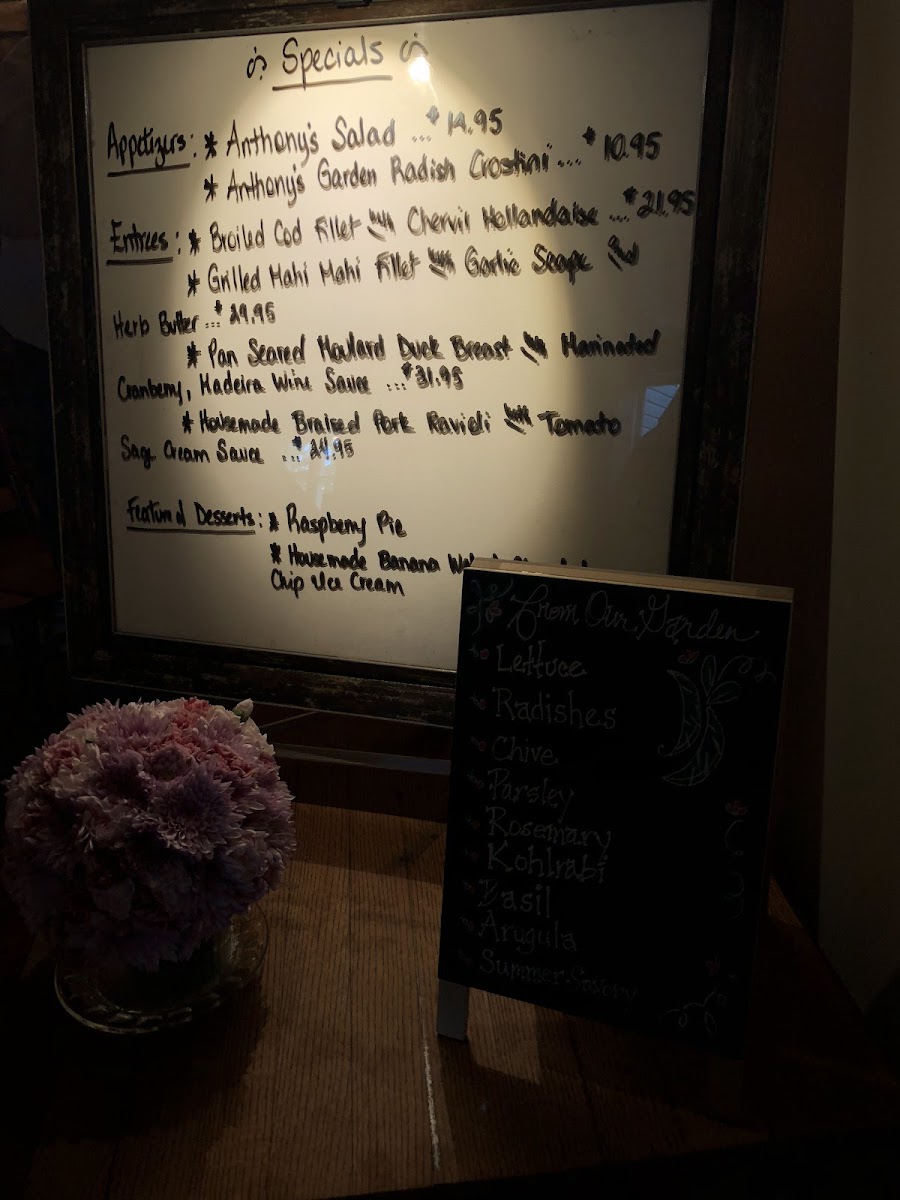 Specials
Appetizers: * Anthony's Salad ... $14.95
* Anthony's Garden Radish Crostini ... $10.95
Entrees: * Broiled Cod Fillet w/ Chervil Hollandaise ... $21.95
* Grilled Mahi Mahi Fillet w/ Garlic Scape
Herb Butter ... $29.95
* Pan Seared Moulard Duck Breast w/ Marinated
Cranberry, Madeira Wine Sauce ... $31.95
* Housemade Braised Pork Ravioli w/ Tomato
Sage Cream Sauce ... $24.95
Featured Desserts: * Raspberry Pie
* Housemade Banana
Chip Ice Cream
From Our Garden
Lettuce
Radishes
Chive
Parsley
Rosemary
Kohlrabi
Basil
Arugula
Summer Savory